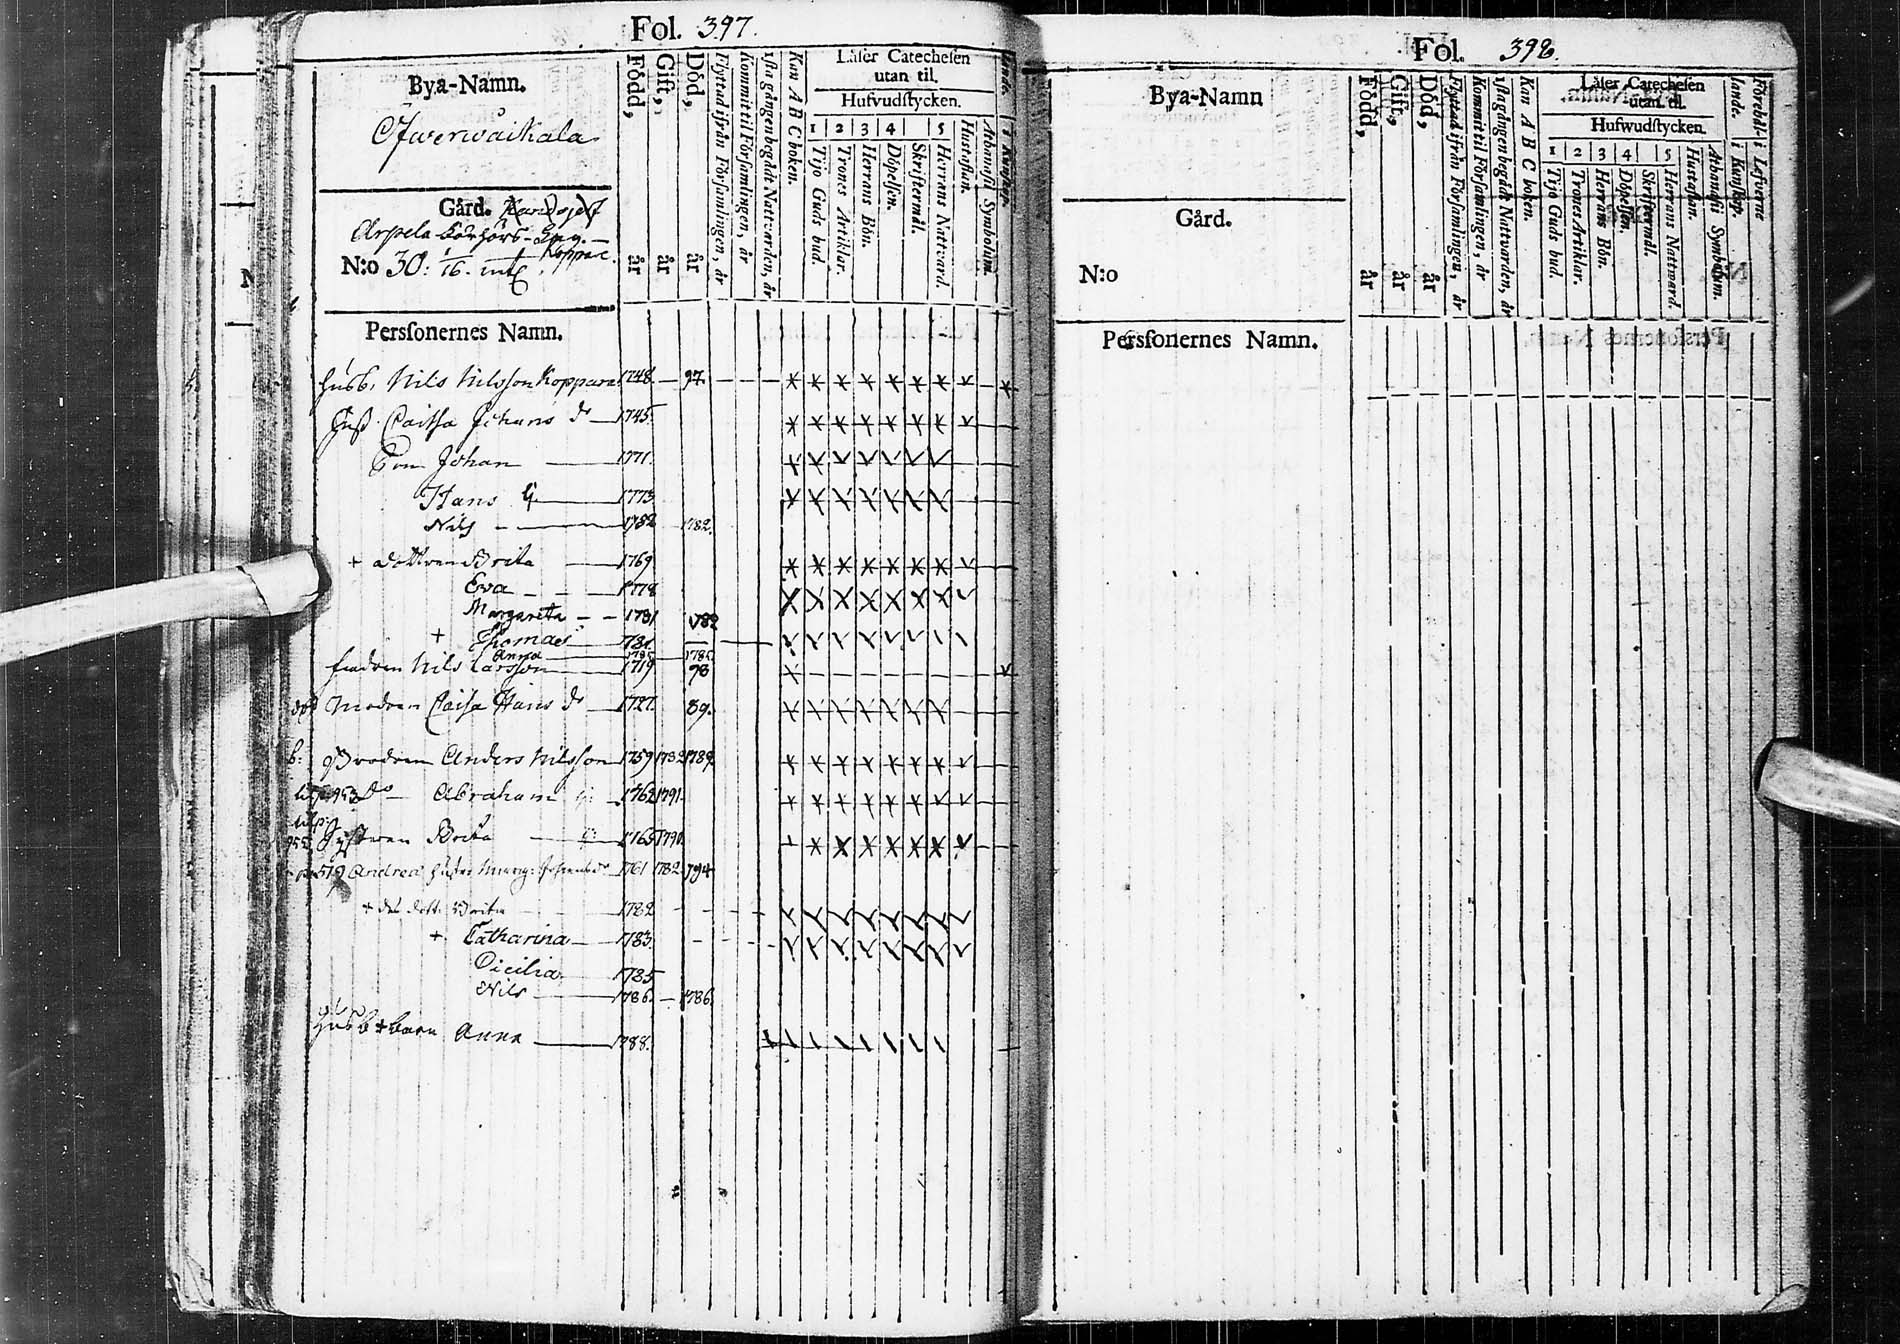 Fol. 397.
Bya-Namn.
Ofwerwaikala
Gård.
Arpela
Koppare
N:o 30:
Född, år
Gift, år
Död, år
Flyttad ifrån Församlingen, år
Kommit til Församlingen, år
1sta gången begådt Nattvarden, år
Kan A B C boken.
Läser Catechesen
utan til.
Hufvudstycken.
1 2 3 4 5
Tijo Guds bud.
Trones Artiklar.
Herrans Bön.
Döpelsen.
Skriftermål.
Herrans Nattvard.
Hustaflan.
Athanasii Symbolum.
Perssonernes Namn.
Husb. Nils Nilsson Koppare 1748 — 97
Caisa Johans dr 1745
Son Johan 1771
Hans 1773
Nils 1782 1782
+ dottren Brita 1769
Eva 1778
Margareta 1781 1782
+ Thomas 1784
Anna 1785 1785
fadren Nils Larsson 1719 98
död Modren Caisa Hans dr 1727 89.
Brodren Anders Nilsson 1759 1782 1789
Abraham 1762 1791
Systren Brita 1765 1790
519 Andreæ Hustru Marg: Johans dr 1761 1782 794
+ dott. Brita 1782
+ Catharina 1783
Cicilia 1785
Nils 1786 — 1786
barn Anna 1788.
Fol. 398.
Bya-Namn
Gård.
N:o
Född, år
Gift, år
Död, år
Flyttad ifrån Församlingen, år
Kommit til Församlingen, år
1sta gången begådt Nattvarden, år
Kan A B C boken.
Läser Catechesen
utan til.
Hufwudstycken.
1 2 3 4 5
Tijo Guds bud.
Trones Artiklar.
Herrans Bön.
Döpelsen.
Skriftermål.
Herrans Nattward.
Hustaflan.
Athanasii Symbolum.
Förehållande. i Kunskap.
i Lefverne
Perssonernes Namn.